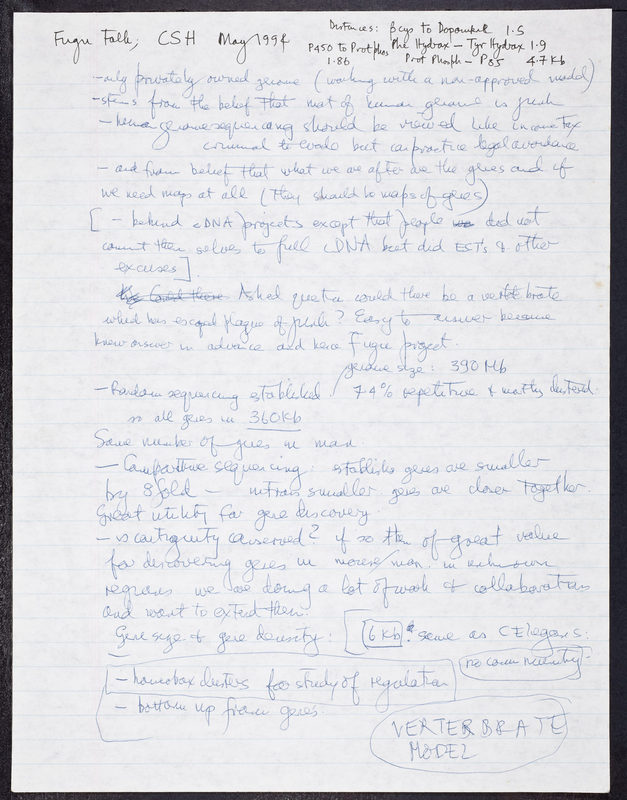 Fugu Talk, CSH May 1994
Distances: βcys to Dopamine R 1.5
P450 to Prot phos Phe Hydrox – Tyr Hydrox 1.9
1.86 Prot Phosph – P85 4.7 Kb
– only privately owned genome (working with a non-approved model)
– stems from the belief that most of human genome is junk
– human genome sequencing should be viewed like income tax
criminal to evade but can practice legal avoidance
– and from belief that what we are after are the genes and if
we need maps at all (they should be maps of genes)
[ – behind cDNA projects except that people did not
commit themselves to full cDNA but did ESTs & other
excuses ].
Asked question could there be a vertebrate
which has escaped plague of junk? Easy to answer because
knew answer in advance and hence Fugu project.
genome size: 390 Mb
– Random sequencing established 7.4% repetitive & mostly clustered.
so all genes in 360Kb
Same number of genes in man.
– Comparative sequencing: establishes genes are smaller
by 8 fold – introns smaller genes are closer together.
Great utility for gene discovery.
– is contiguity conserved? if so then of great value
for discovering genes in mouse/man. in unknown
regions we are doing a lot of work & collaborations
and want to extend them.
Gene size & gene density: [6 Kb. same as C Elegans.
no community
– homeobox clusters for study of regulation
– bottom up from genes.
VERTEBRATE
MODEL